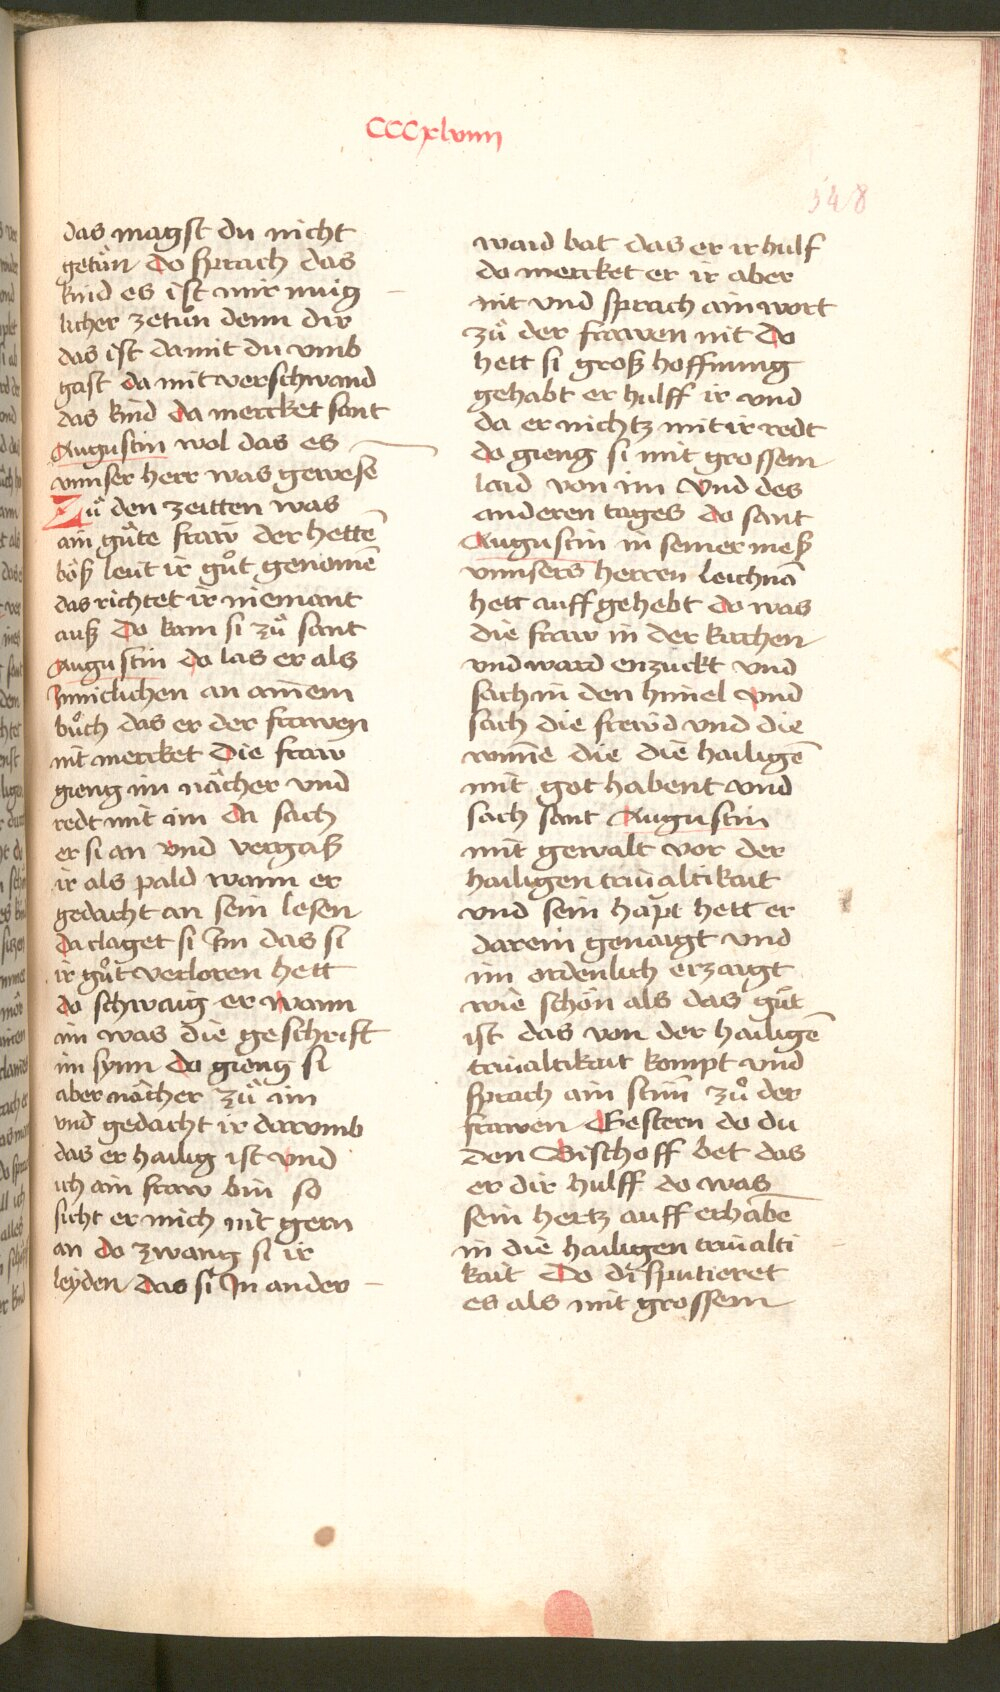 CCCxlviiii
348
das magst du nicht
getůn Do sprach das
kind es ist mir müg
licher zetůn denn dir
das ist damit du vmb
gast da mit verschwand
das kind da mercket sant
Augustin wol das es
vnnser herr was gewesē
Zů den zeitten was
ain gůte fraw der hettē
böß leüt ir gůt genomē
das richtet ir niemant
auß Do kam si zů sant
Augustin do las er als
Inniclichen an ainem
bůch das er der frawen
nit mercket Die fraw
gieng im nächer vnd
redt mit im Da sach
er si an vnd vergaß
ir als pald wann er
gedacht an sein lesen
Da claget si Im das si
ir gůt verloren hett
do schwaig er wann
im was die geschrift
im synn do gieng si
aber nächer zů im
vnd gedacht ir darumb
das er hailig ist vnd
ich ain fraw bin so
sicht er mich nit gern
an do zwang si ir
leyden das si In ander
waid bat das er ir hulf
do mercket er ir aber
nit vnd sprach ain wort
zů der frawen nit Do
hett si groß hoffnung
gehabt er hulff ir vnd
da er nichtz mit ir redt
do gieng si mit grossem
laid von im Vnd des
anderen tages do sant
Augustin in seiner meß
vnnsers herren leichnā
hett auff gehebt do was
die fraw in der kirchen
vnd ward enzuckt vnd
sach in den himel vnd
sach die frewd vnd die
wunne die die hailigē
mit got habent vnd
sach sant Augustin
mit gewalt vor der
hailigen triualtikait
vnd sein hapt hett er
darein genaigt vnd
im ordenlich erzaigt
wie schön als das gůt
ist das von der hailigē
triualtikait kompt vnd
sprach ain stim zů der
frawen Gestern do du
den Bischoff bet das
er dir hulff do was
sein hertz auff erhabē
in die hailigen triualti
kait Do disputieret
es als mit grossem